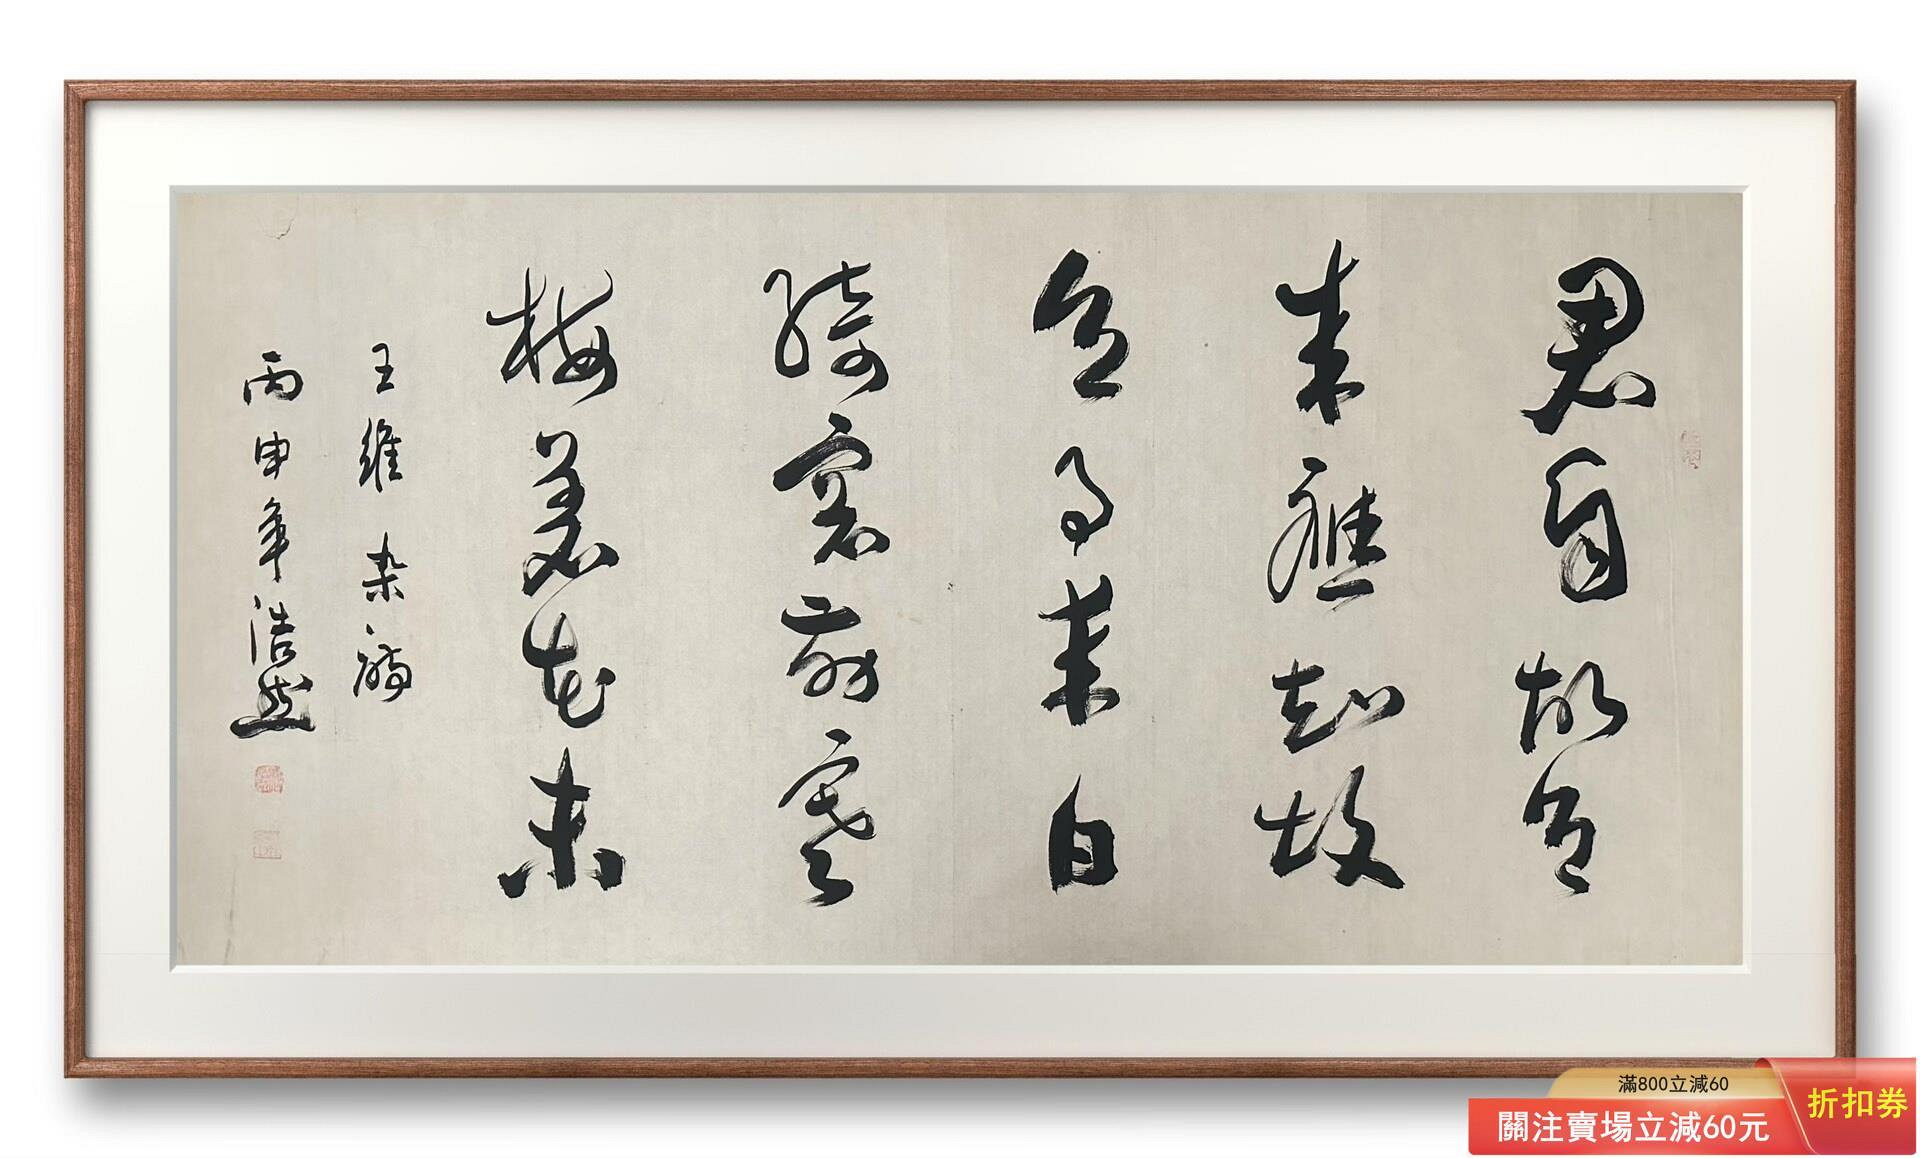 君自故鄉
来應知故
鄉事来日
綺窗前寒
梅著花未
王維杂詩
丙申年浩然
滿800立減60
關注賣場立減60元
折扣券